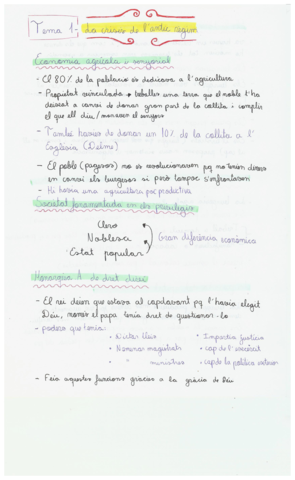 Tema 1: La crisis de l'antic règim
Economia agrícola i senyorial
- El 80% de la població es dedicava a l'agricultura.
- Propietat vinculada → treballes una terra que el noble t'ha
deixat a canvi de donar gran part de la collita i complir
el que ell diu / manaven els senyors
- També havies de donar un 10% de la collita a l'
Església (Delme)
- El poble (pagesos) no es revolucionaven pq no tenien diners
en canvi els burgesos si però tampoc s'enfrontaven
- Hi havia una agricultura poc productiva
Societat fonamentada en els privilegis
Clero
Noblesa
Estat popular
Gran diferència econòmica
Monarquia A. de dret diví
- El rei deien que estava al capdavant pq l'havia elegit
Déu, només el papa tenia dret de qüestionar-lo
- poders que tenia:
• Dictar lleis
• Nomenar magistrats
• " ministres
• Impartia justícia
• cap de l'exèrcit
• cap de la política exterior
- Feia aquestes funcions gràcies a la gràcia de Déu